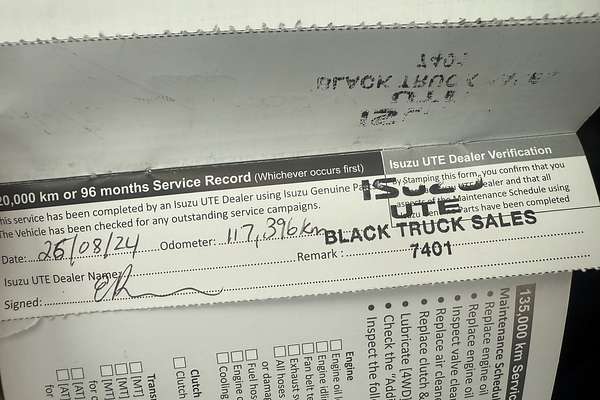 20,000 km or 96 months Service Record (Whichever occurs first)
This service has been completed by an Isuzu UTE Dealer using Isuzu Genuine Parts
The Vehicle has been checked for any outstanding service campaigns.
Date: 26/08/24 Odometer: 117,396km
Isuzu UTE Dealer Name:
Remark :
Signed:
Isuzu UTE Dealer Verification
By Stamping this form, you confirm that you
UTE Dealer and that all
aspects of the Maintenance Schedule using
Parts have been completed
ISUZU
UTE
BLACK TRUCK SALES
7401
135,000 km Servic
Maintenance Schedul
• Replace engine oil
• Replace engine oil
• Inspect valve clea
• Replace air cleane
• Replace clutch &
• Lubricate [4WD]
• Check the "Addi
• Inspect the follo
Engine
Engine oil
Engine idlin
Fan belt te
Exhaust s
All hoses
or damag
Fuel hos
Engine c
Cooling
Clutch
Clutch
Trans
[MT]
[MT]
for c
[AT]
[AT]
for